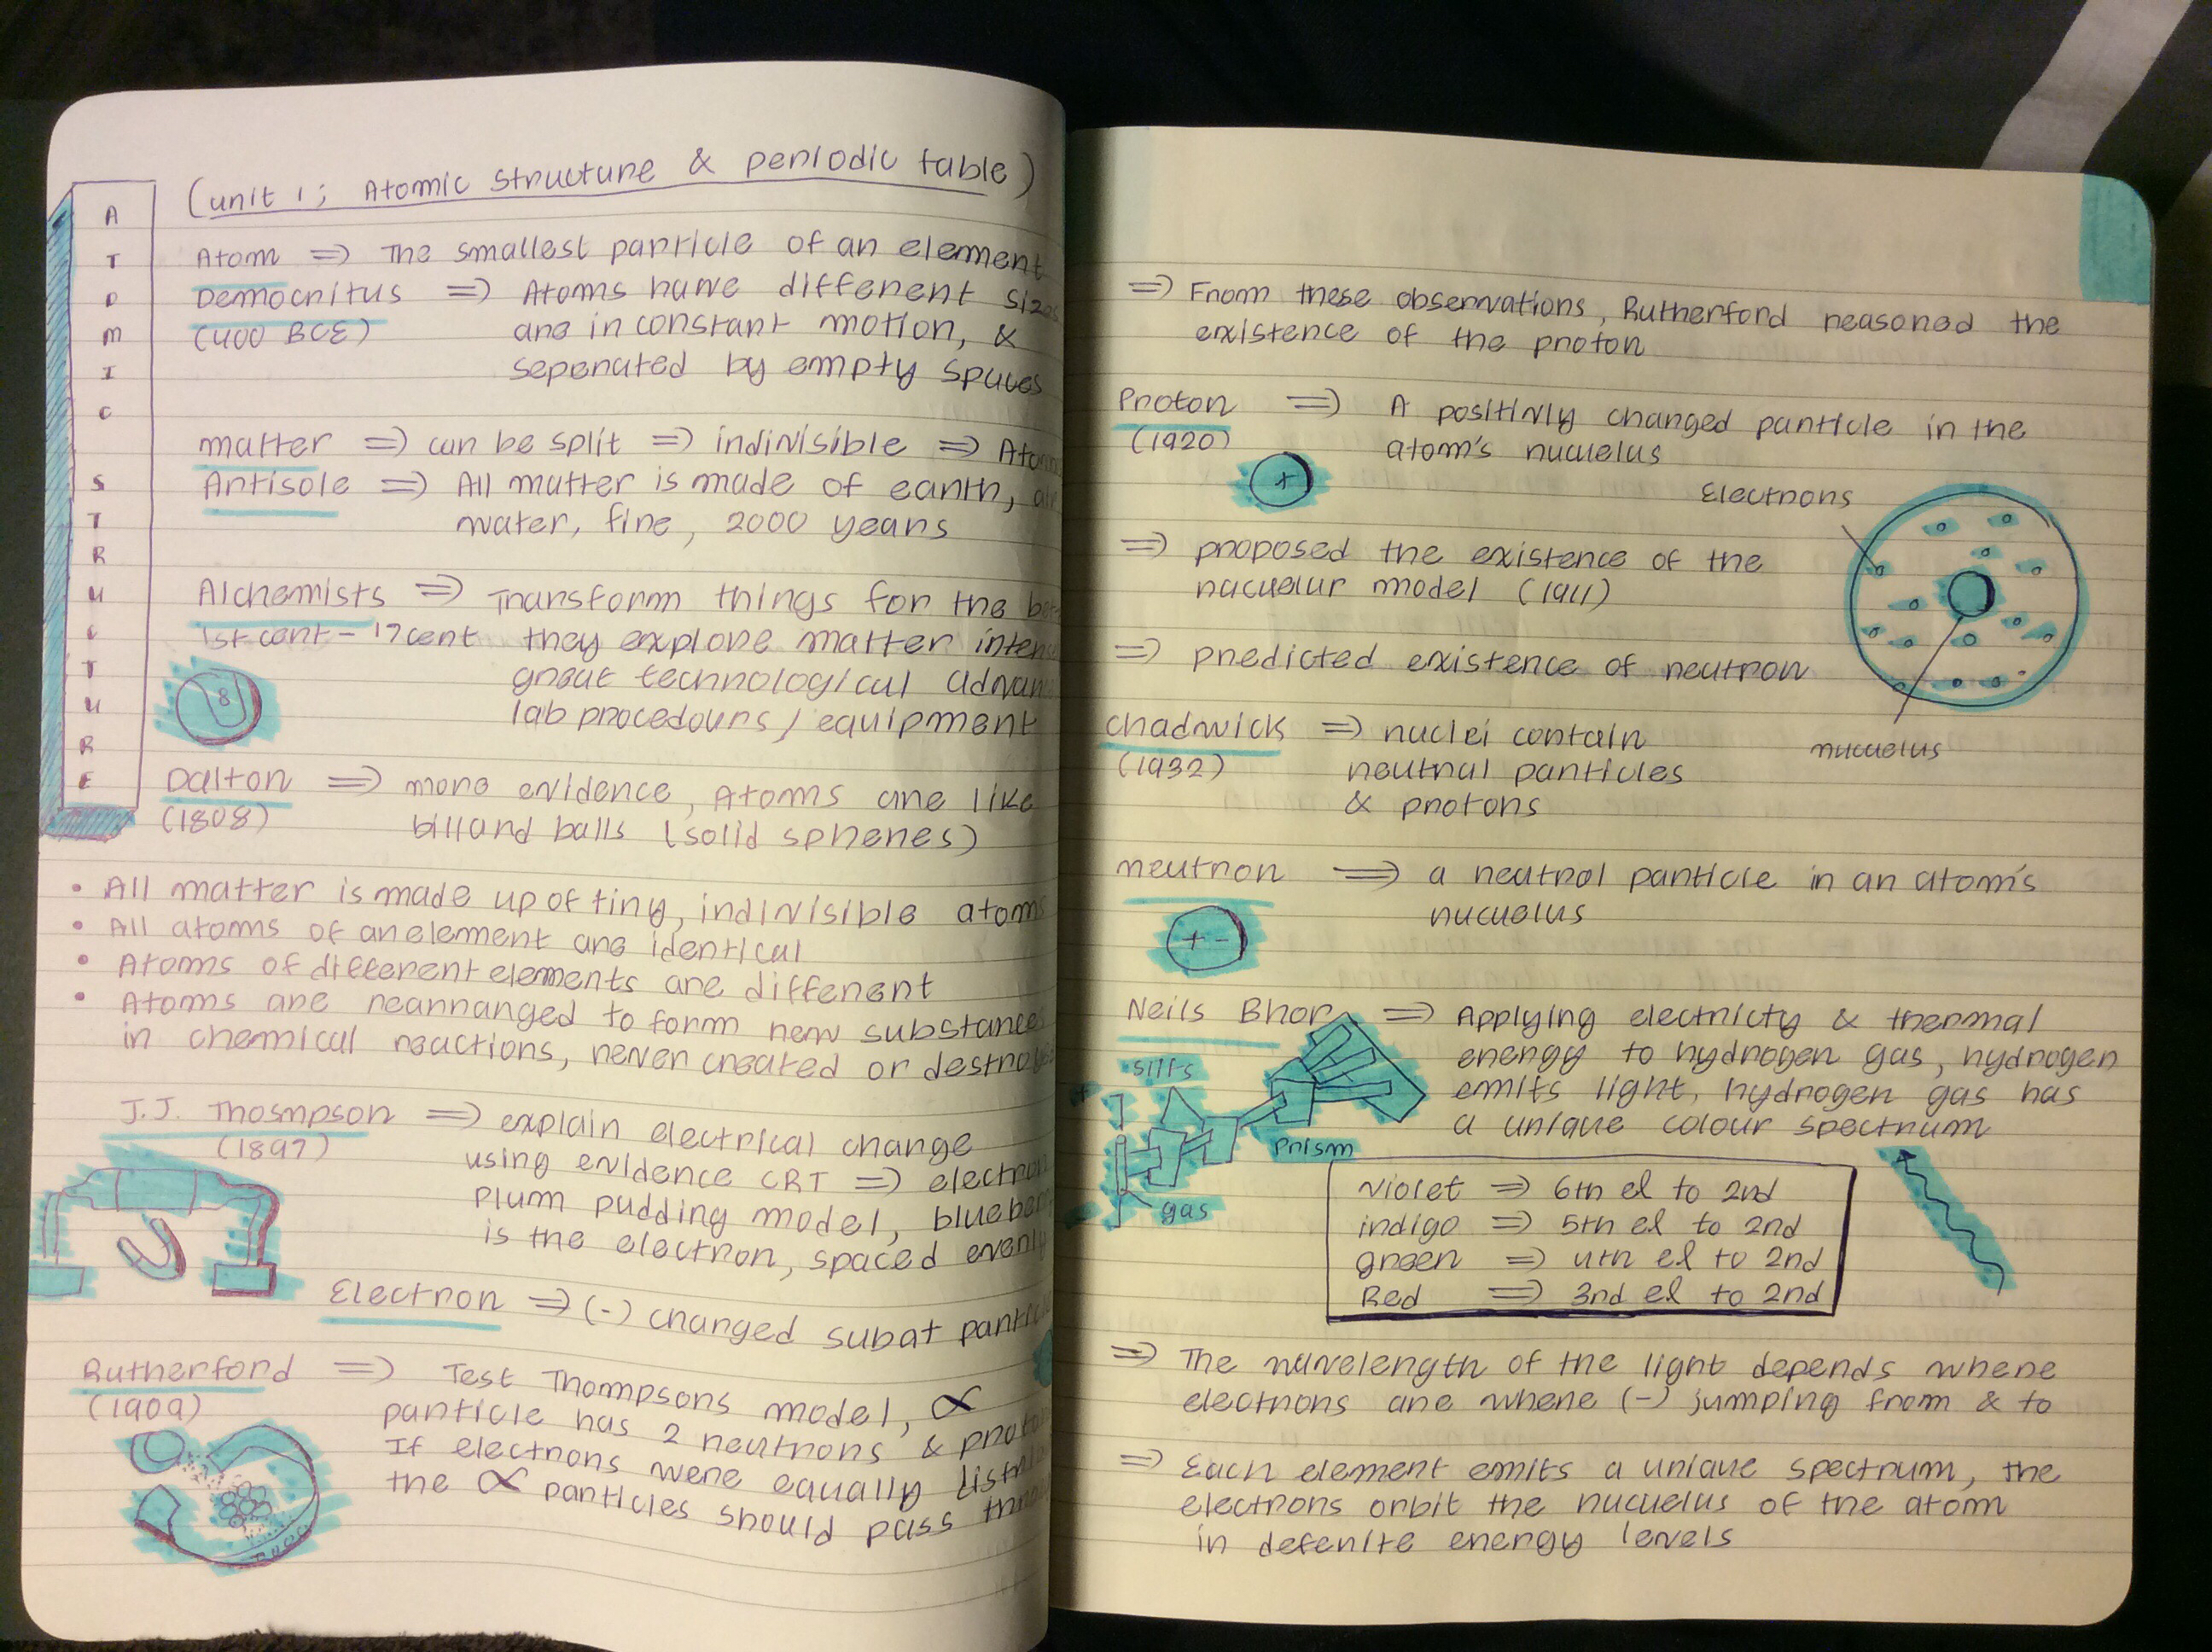 ATOMIC STRUCTURE
(unit 1; Atomic structure & periodic table)
Atom => The smallest particle of an element
Democritus => Atoms have different sizes
(400 BCE) are in constant motion, &
seperated by empty spaces
matter => can be split => indivisible => Atom
Aritisole => All matter is made of earth,
water, fire, 2000 years
Alchemists => Transform things for the
1st cent - 17 cent they explore matter
great technological
lab procedours / equipment
8
Dalton => more evidence, Atoms are like
(1808) billard balls (solid spheres)
• All matter is made up of tiny, indivisible atoms
• All atoms of an element are identical
• Atoms of different elements are different
• Atoms are rearranged to form new substances
in chemical reactions, never created or
J.J. Thosmpson => explain electrical charge
(1897) using evidence CRT => electron
plum pudding model,
is the electron, spaced
Electron => (-) charged subat
Rutherford => Test Thompsons model, ∝
(1909) particle has 2 neutrons &
If electrons were equally
the ∝ particles should pass
=> From these observations, Rutherford reasoned the
existence of the proton
Proton => A positivly charged particle in the
(1920) atom's nucuelus
+
Electrons
=> proposed the existence of the
nacuelur model (1911)
=> predicted existence of neutron
nucuelus
chadwick => nuclei contain
(1932) neutral particles
& protons
neutron => a neutral particle in an atom's
nucuelus
+ -
Neils Bhor => Applying electricty & thermal
energy to hydrogen gas, hydrogen
emits light, hydrogen gas has
a unique colour spectrum
slits
prism
gas
violet => 6th el to 2nd
indigo => 5th el to 2nd
green => 4th el to 2nd
Red => 3rd el to 2nd
=> The wavelength of the light depends where
electrons are where (-) jumping from & to
=> Each element emits a unique spectrum, the
electrons orbit the nucuelus of the atom
in defenite energy levels